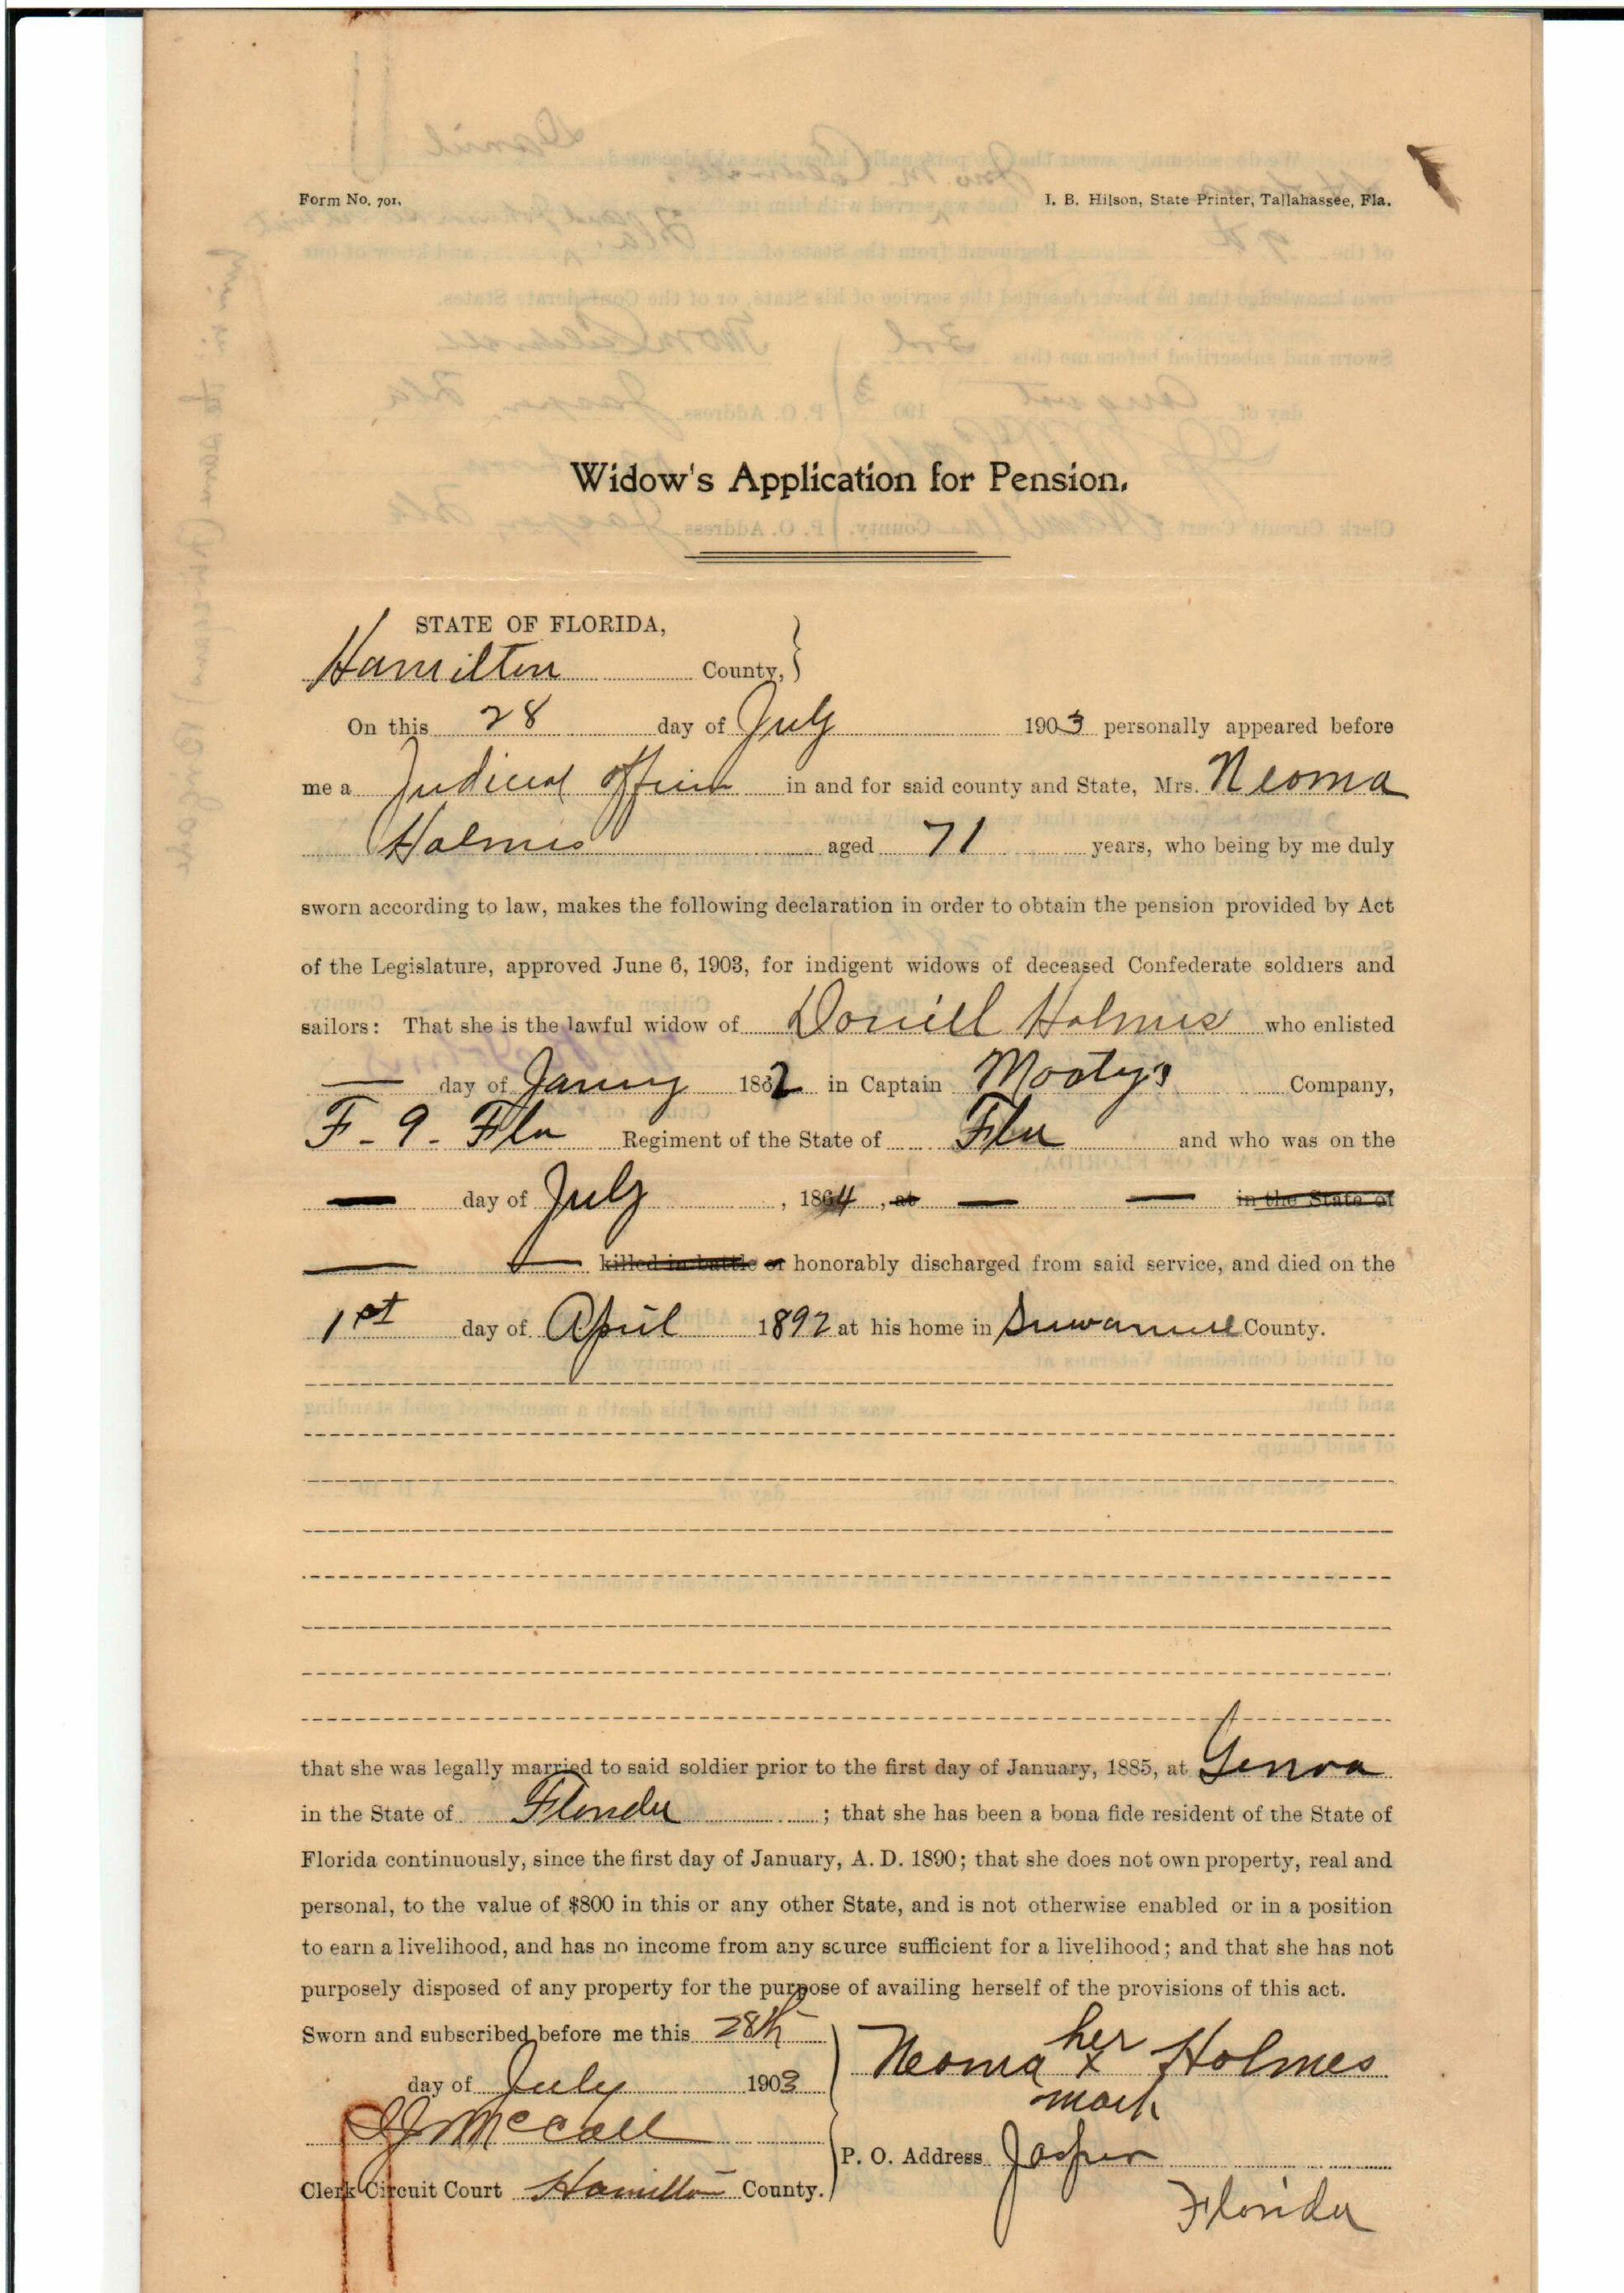 Form No. 701.
I. B. Hilson, State Printer, Tallahassee, Fla.
Widow's Application for Pension.
STATE OF FLORIDA,
Hamilton County,
On this 28 day of July 1903 personally appeared before
me a Judicial officer in and for said county and State, Mrs. Neoma
Holmes aged 71 years, who being by me duly
sworn according to law, makes the following declaration in order to obtain the pension provided by Act
of the Legislature, approved June 6, 1903, for indigent widows of deceased Confederate soldiers and
sailors: That she is the lawful widow of Daniell Holmes who enlisted
— day of 1862 in Captain Mooty's Company,
F - 9 - Fla Regiment of the State of Fla and who was on the
— day of July, 1864, at — — in the State of
— — killed in battle or honorably discharged from said service, and died on the
1st day of April 1892 at his home in Suwannee County.
that she was legally married to said soldier prior to the first day of January, 1885, at Genoa
in the State of Florida; that she has been a bona fide resident of the State of
Florida continuously, since the first day of January, A. D. 1890; that she does not own property, real and
personal, to the value of $800 in this or any other State, and is not otherwise enabled or in a position
to earn a livelihood, and has no income from any source sufficient for a livelihood; and that she has not
purposely disposed of any property for the purpose of availing herself of the provisions of this act.
Sworn and subscribed before me this 28th
day of July 1903
McCall
Clerk Circuit Court Hamilton County.
her
Neoma x Holmes
mark
P. O. Address Jasper
Florida